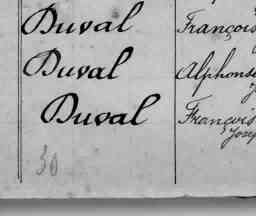 Duval François
Duval Alphonse
Duval François
Josep
30